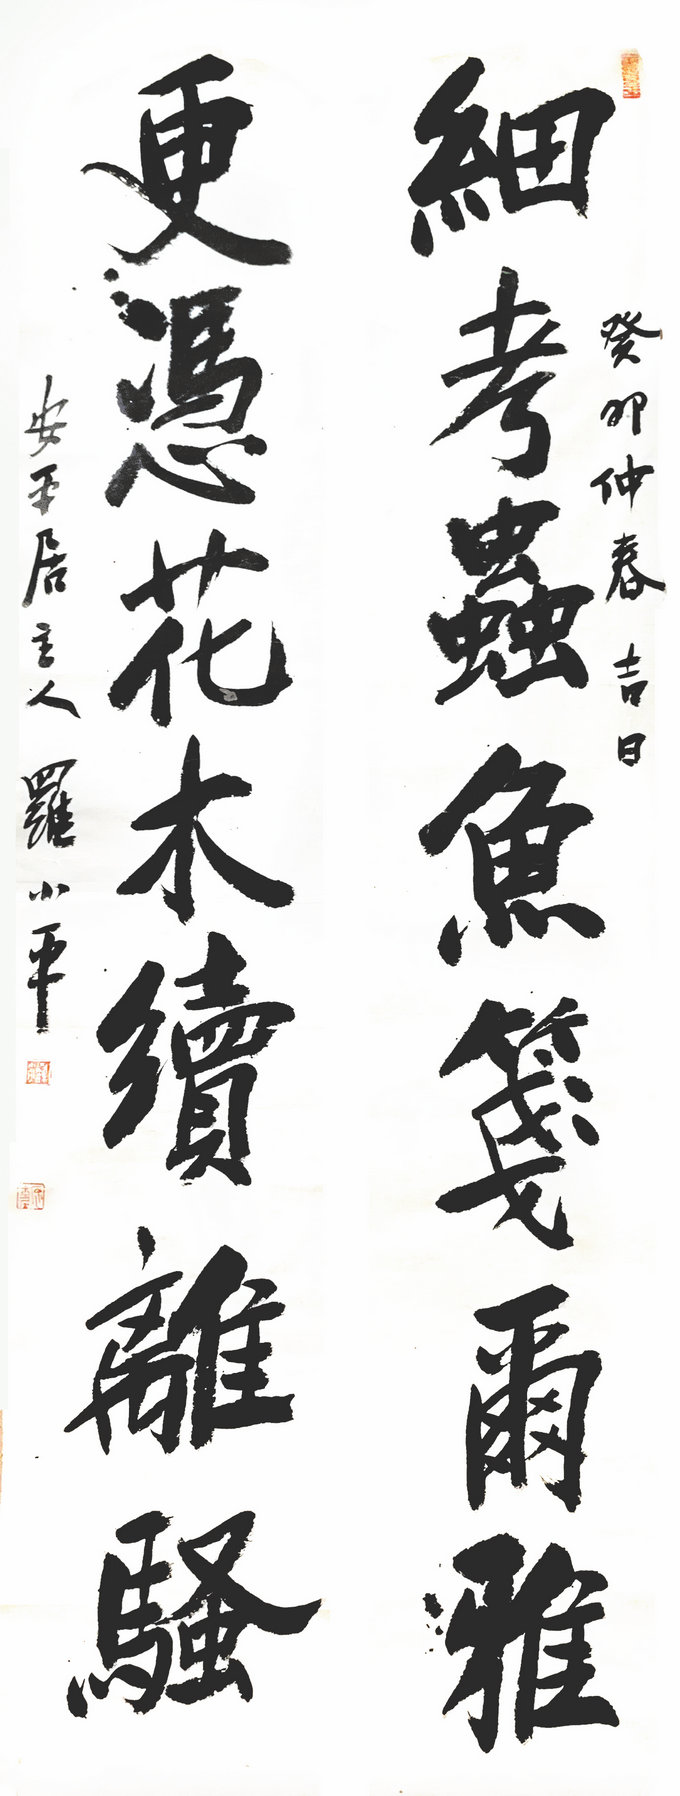 癸卯仲春吉日
細考蟲魚箋爾雅
更憑花木續離騷
安平居主人羅小平